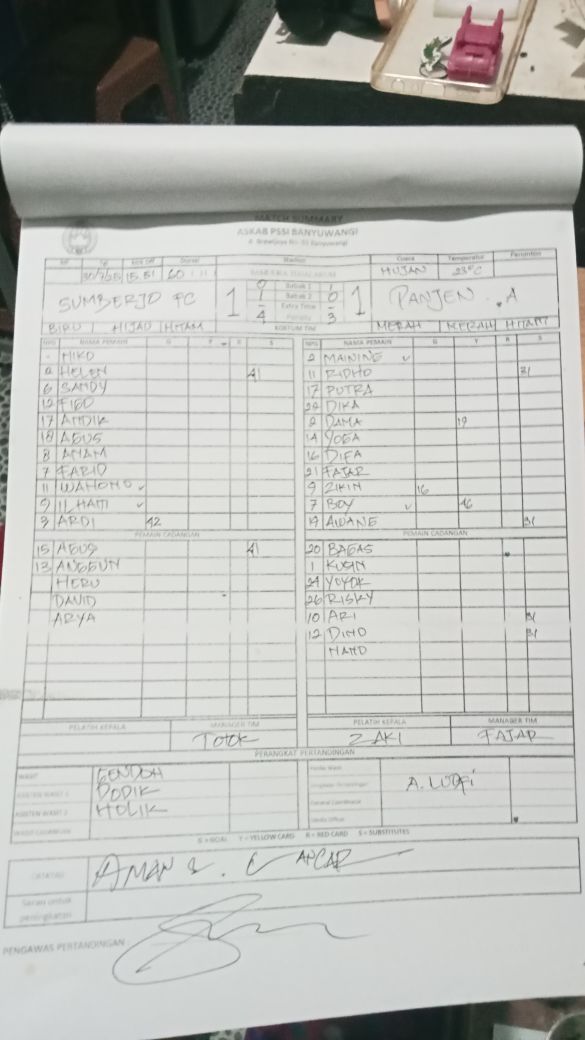 MATCH SUMMARY
ASKAB PSSI BANYUWANGI
Tgl Kick Off Durasi Stadion Cuaca Temperatur Penonton
30/7/25 15.51 60 HUJAN 23°C
SUMBERJO FC 1 0 Babak 1 1 1 PANJEN . A
1 Babak 2 0
- Extra Time -
4 Penalty 3
BIRU HIJAU HITAM KOSTUM TIM MERAH MERAH HITAM
NPG NAMA PEMAIN G Y R S NPG NAMA PEMAIN G Y R S
- MIKO 2 MAINING ✓
2 HELEN 41 11 RIDHO 31
6 SANDY 17 PUTRA
12 FIGO 29 DIKA
17 ANDIK 2 DAMA 19
18 AGUS 14 YOGA
8 ANAM 16 DIFA
7 FARID 21 FAJAR
11 WAHONO ✓ 9 ZIKIN 16
9 ILHAM ✓ 7 BOY ✓ 46
3 ARDI 42 19 AIDANE 31
PEMAIN CADANGAN PEMAIN CADANGAN
15 AGUS 41 20 BAGAS
13 ANGGUN 1 KUSIN
HERU 24 YOYOK
DAVID 26 RISKY
ARYA 10 ARI 31
12 DINO 31
NAND
PELATIH KEPALA MANAGER TIM PELATIH KEPALA MANAGER TIM
TOTOK ZAKI FAJAR
PERANGKAT PERTANDINGAN
WASIT GENDOH
ASISTEN WASIT 1 DODIK A. LUDFI
ASISTEN WASIT 2 HOLIK
WASIT CADANGAN
G = GOAL Y = YELLOW CARD R = RED CARD S = SUBSTITUTES
CATATAN AMAN & LANCAR
Saran untuk
peningkatan
PENGAWAS PERTANDINGAN :